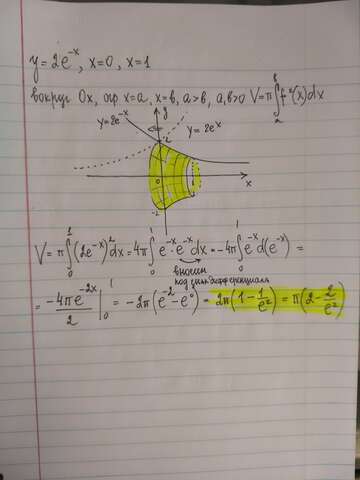 y=2e^{-x}, x=0, x=1
вокруг Ox, огр x=a, x=b, a>b, a,b>0 V=π∫_a^b f²(x)dx
y
y=2e^{-x}
2
y=2e^x
0
x
-2
V=π∫_0^1(2e^{-x})²dx=4π∫_0^1 e^{-x}·e^{-x}dx=-4π∫_0^1 e^{-x}d(e^{-x})=
вносим
под знак дифференциала
=\frac{-4πe^{-2x}}{2}|_0^1=-2π(e^{-2}-e^0)=2π(1-\frac{1}{e²})=π(2-\frac{2}{e²})